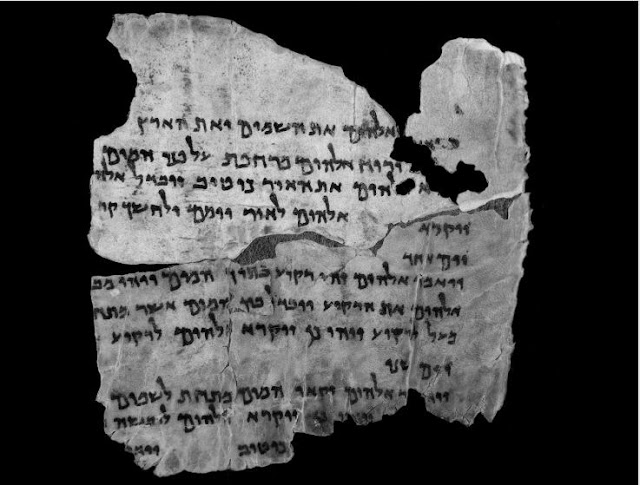 אלהים את השמים ואת הארץ
ורוח אלהים מרחפת על פני המים
אלהים את האור כי טוב ויבדל אלה
ויקרא אלהים לאור יומם ולחשך קר
יום אחד
ויאמר אלהים יהי רקיע בתוך המים ויהי מב
אלהים את הרקיע ויבדל בין המים אשר מתח
מעל לרקיע ויהי כן ויקרא אלהים לרקיע
יום שני
ויאמר אלהים יקאו המים מתחת לשמים
ויהי כן ויקרא אלהים ליבשה
כי טוב ויאמ